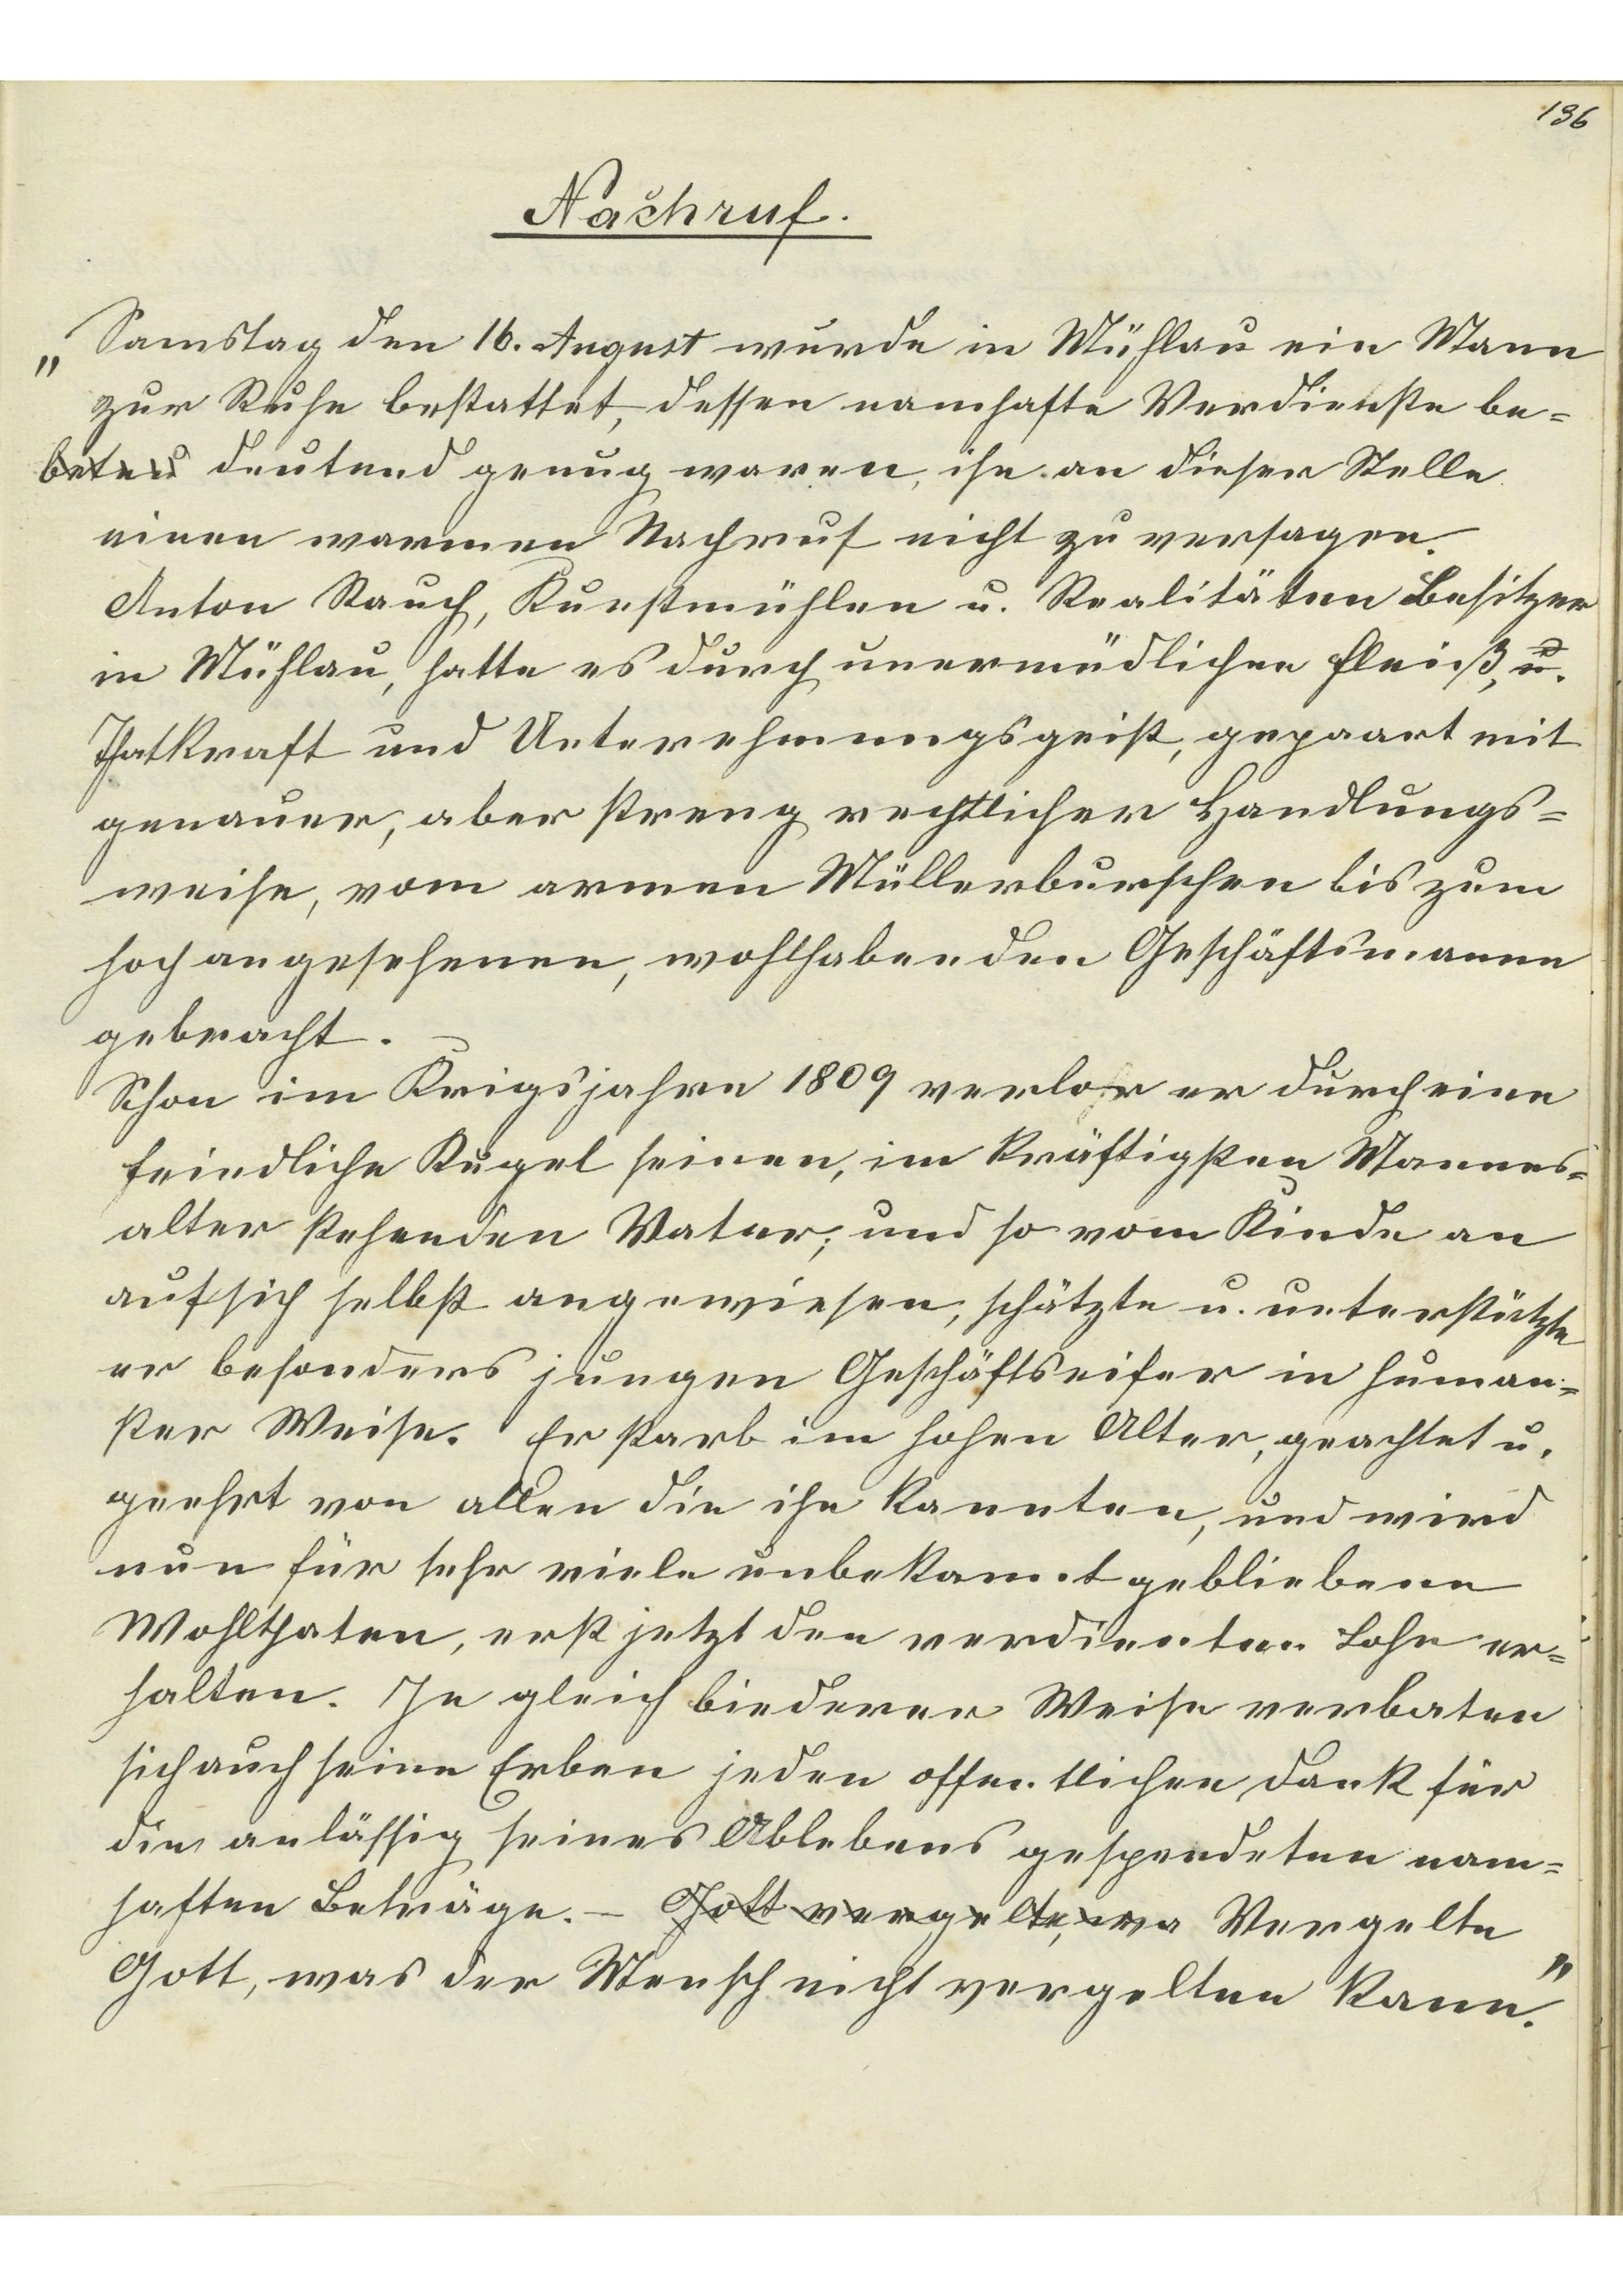 136
Nachruf.
„Samstag den 16. August wurde in Mühlau ein Mann
zur Ruhe bestattet, dessen namhafte Verdienste be=
deutend genug waren, ihn an dieser Stelle
einen warmen Nachruf nicht zu versagen.
Anton Rauch, Kunstmühlen u. Realitäten Besitzer
in Mühlau, hatte es durch unermüdlichen Fleiß, u.
Thatkraft und Unternehmungsgeist, gepaart mit
genauer, aber streng rechtlicher Handlungs=
weise, vom armen Müllerburschen bis zum
hochangesehenen, wohlhabenden Geschäftsmanne
gebracht.
Schon im Krigsjahre 1809 verlor er durch eine
feindliche Kugel seinen, im kräftigsten Mannes=
alter stehenden Vater; und so vom Kinde an
auf sich selbst angewiesen, schätzte u. unterstützte
er besonders jungen Geschäftseifer in human=
ster Weise. Er starb im hohen Alter, geachtet u.
geehrt von allen die ihn kannten, und wird
nun für sehr viele unbekannt gebliebene
Wohlthaten, erst jetzt den verdienten Lohn er=
halten. In gleich biederer Weise verbaten
sich auch seine Erben jeden offentlichen Dank für
die anlässig seines Ablebens gespendeten nam=
haften Beträge. – Gott vergelte, wa Vergelte
Gott, was der Mensch nicht vergelten kann."